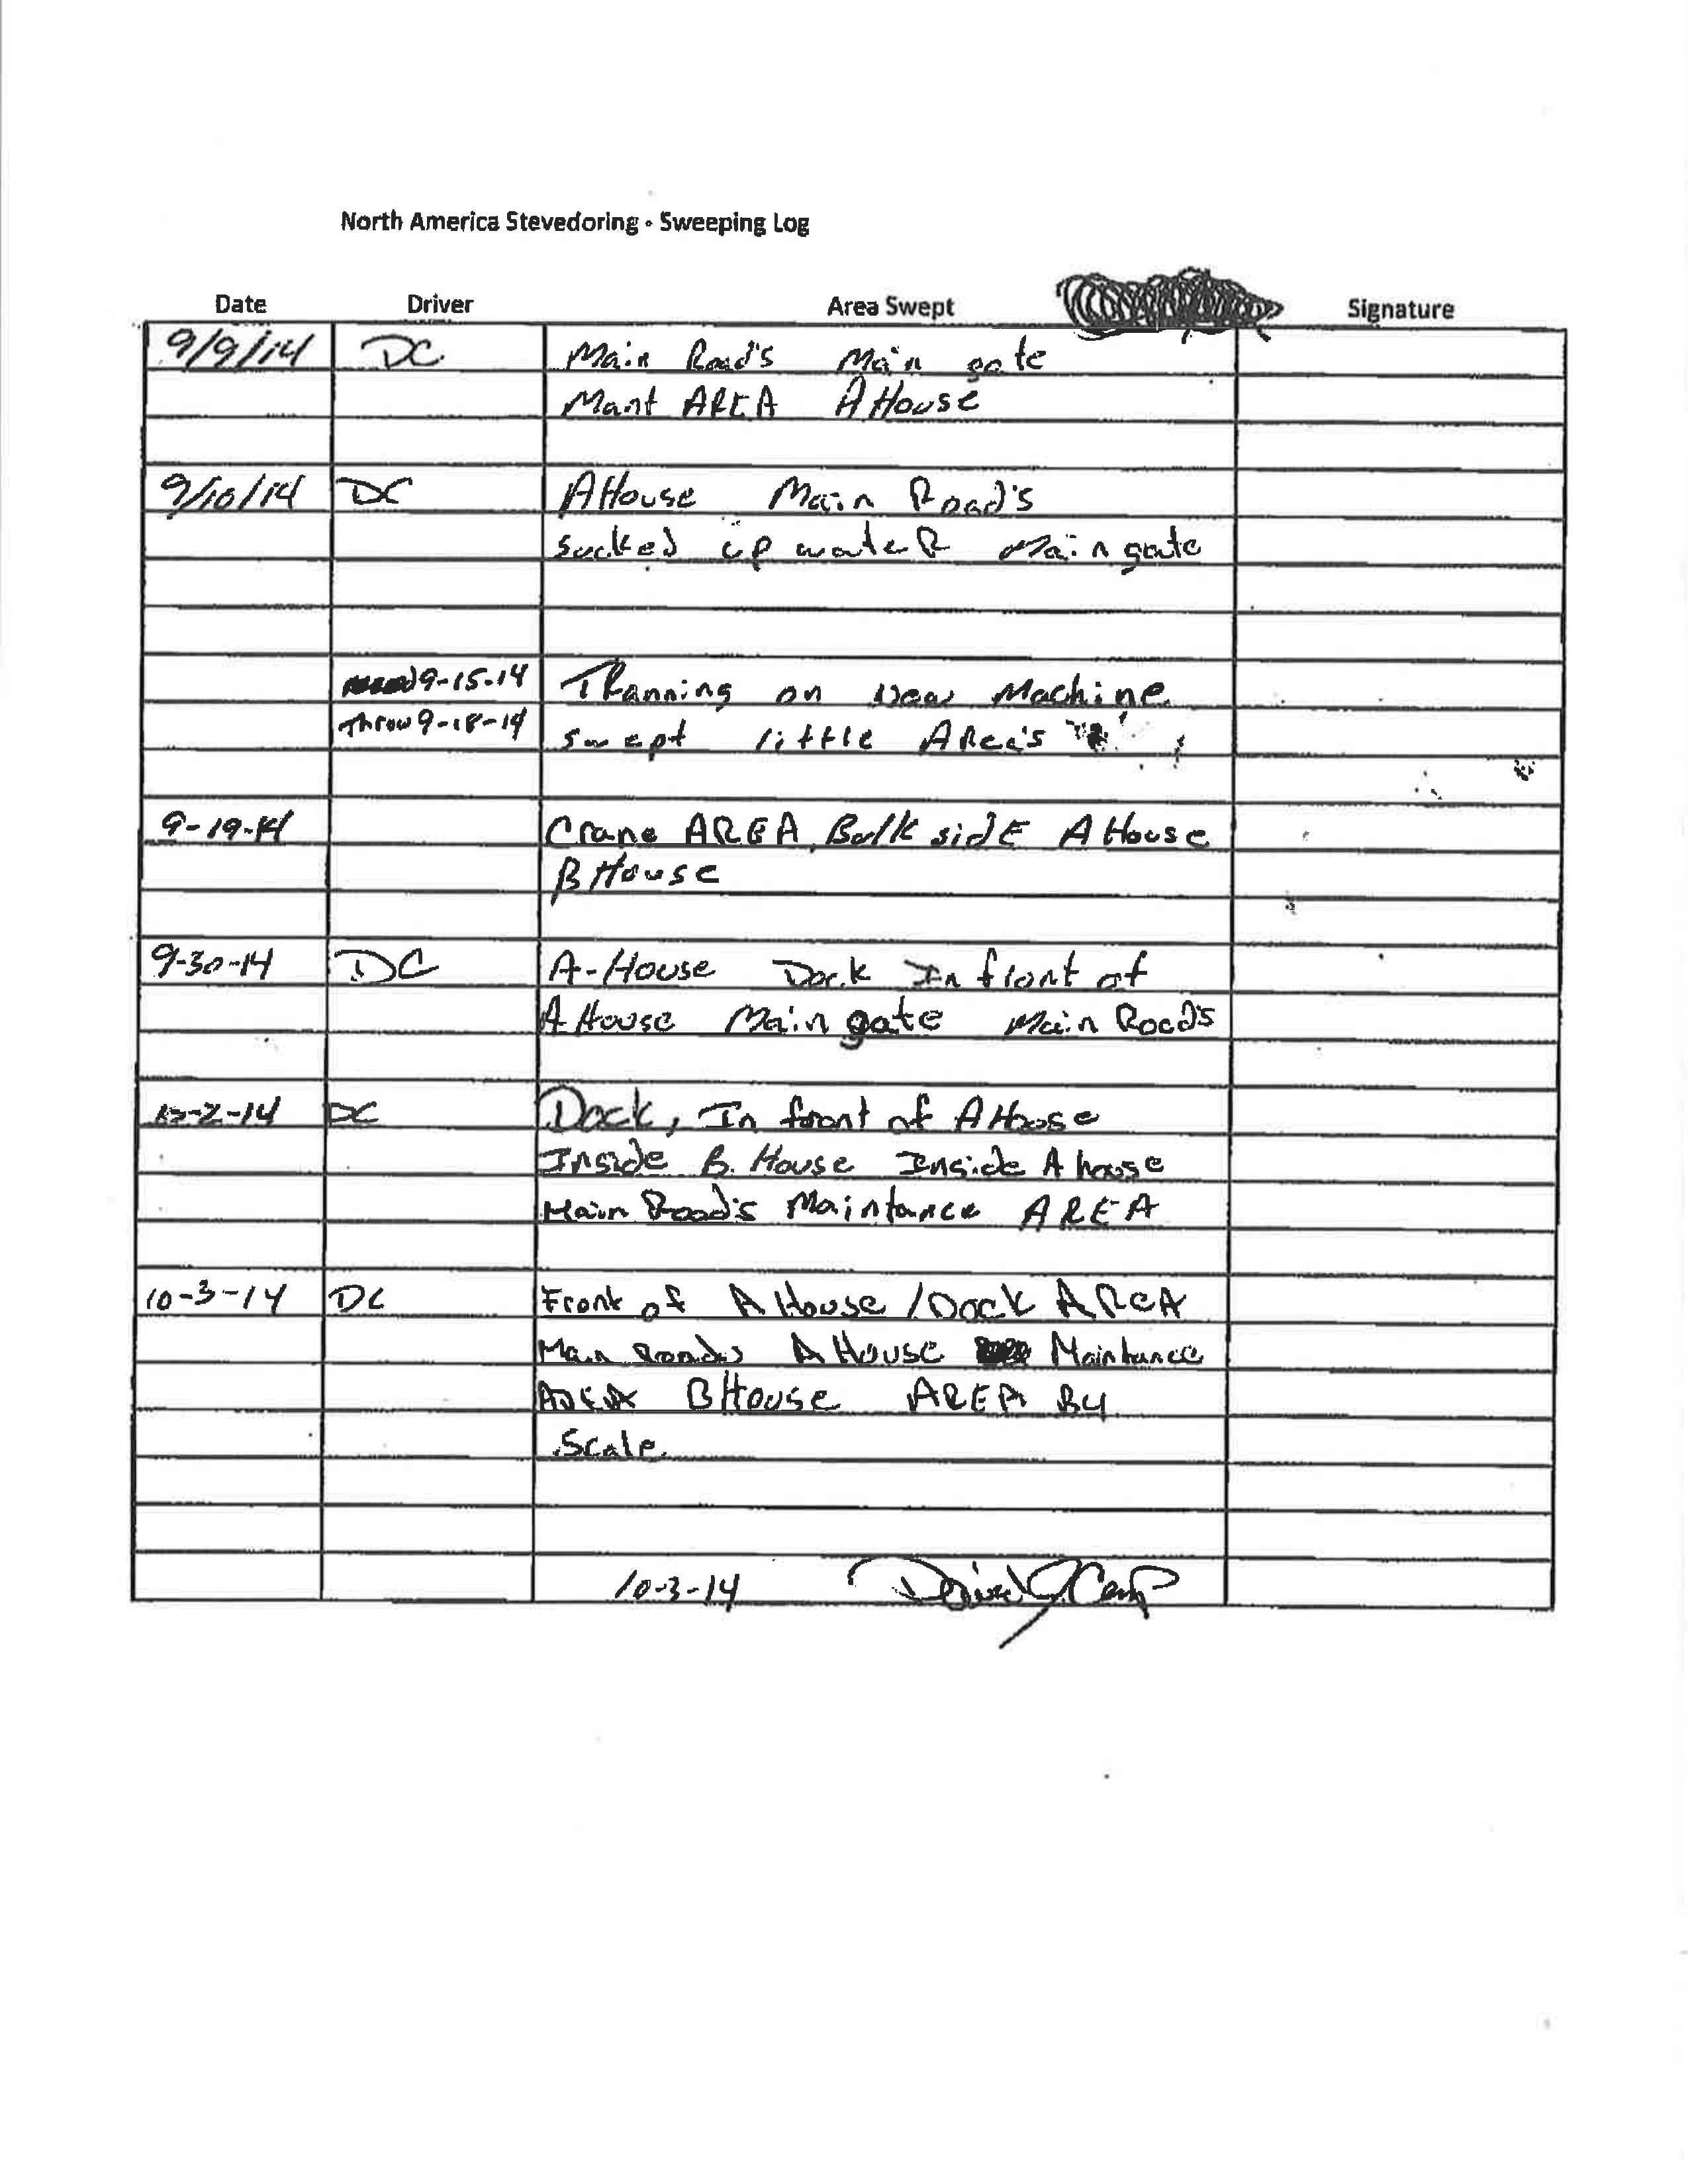 North America Stevedoring - Sweeping Log
Date Driver Area Swept Signature
9/9/14 DC Main Road's Main gate
Mant AREA A House
9/10/14 DC A House Main Road's
sucked up wateR Main gate
9-15-14 TRanning on New Machine
Throw 9-18-14 swept little AReas
9-19-14 Crane AREA Bulk sidE A House
B House
9-30-14 DC A-House Dock In front of
A House Main gate Main Roads
10-2-14 DC Dock, In front of A House
Inside B. House Inside A house
Main Road's Maintance AREA
10-3-14 DC Front of A House / Dock AREA
Main Roads A House Maintance
AREA B House AREA By
Scale
10-3-14 David J Camp